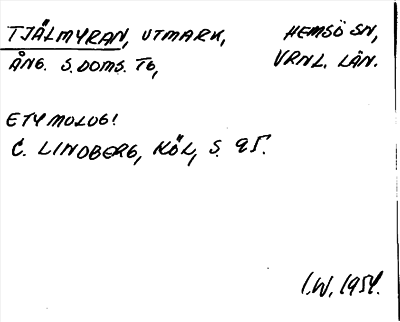 TJÄLMYRAN, UTMARK, HEMSÖ SN,
ÅNG. S. DOMS. TG, VRNL. LÄN.
ETYMOLOGI
C. LINDBERG, KÖL, S. 95.
I.W. 1954.